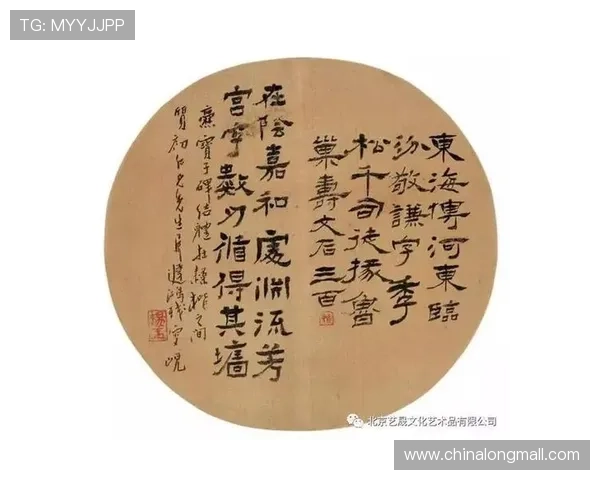 TG: MYYJJPP
東海傅河東臨
汾敬謙字季
松千司徒掾魯
巢壽文后三百
在陰嘉和處淵流芳
宮宇數仞循得其墻
爨寶子碑結體在隸楷之間
質初仁兄先生
北京艺晟文化艺术品有限公司
www.chinalongmall.com